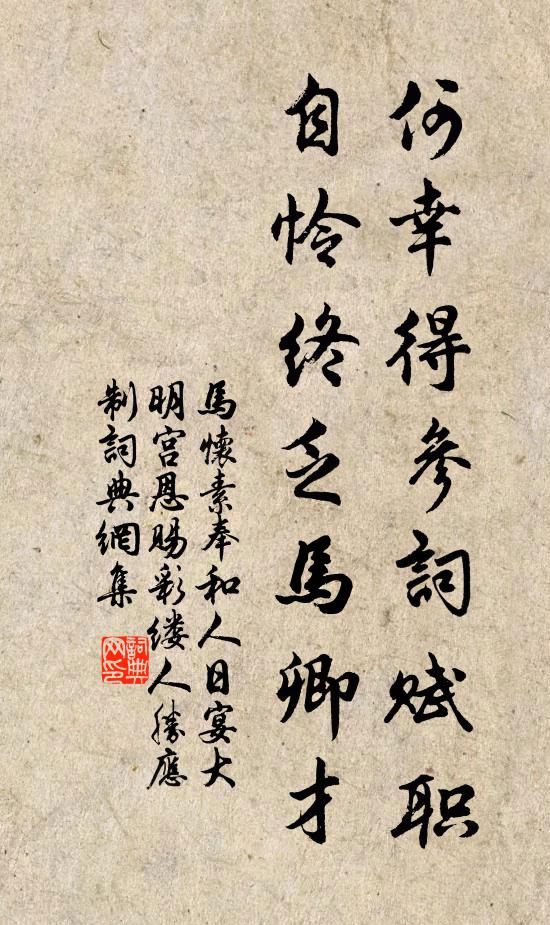 何幸得參詞賦职
自怜終乏馬卿才
馬懷素奉和人日宴大
明宮恩賜彩缕人勝應
制詞典網集
詞典
网印